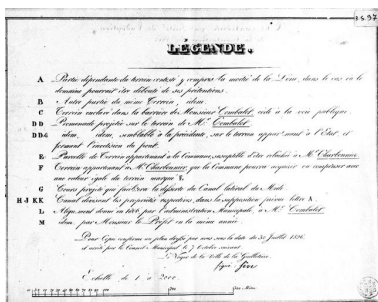 3S97
LÉGENDE.
A Partie dépendante du terrain contesté y compris la moitié de la Lône, dans le cas où le
domaine pourrait être débouté de ses prétentions.
B Autre partie du même Terrain, idem.
C Terrain enclavé dans la barrière de Monsieur Combalot, cédé à la voie publique.
DD Promenade projetée sur le terrain de Mr. Combalot.
DDd idem, idem, semblable à la précédente, sur le terrain appartenant à l'État, et
formant l'excédent du pont.
E Parcelle de Terrain appartenant à la Commune, susceptible d'être rétrocédée à Mr. Charbonnier
F Terrain appartenant à Mr. Charbonnier que la Commune pourra acquérir en compensation avec
une valeur égale du terrain marqué E.
G Cours projeté que facilitera la desserte du Canal latéral du Midi
H J K K Canal divisant les propriétés respectives, dans la supposition prévue lettre A.
L Alignement donné en 1825 par l'administration Municipale, à Mr. Combalot.
M idem par Monsieur le Préfet en la même année.
Pour Copie conforme au plan dressé par moi sous la date du 30 Juillet 1826,
et arrêté par le Conseil Municipal le 7 Octobre suivant
Le Voyer de la Ville de la Guillotière
signé
Échelle de 1 à 2000.